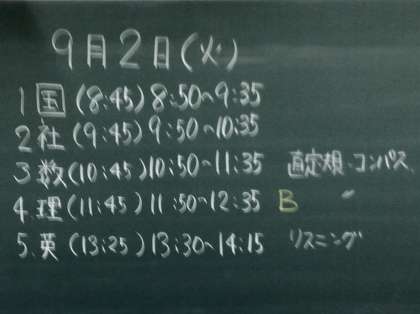 9月2日(火)
1 国 (8:45) 8:50~9:35
2 社 (9:45) 9:50~10:35
3 数 (10:45) 10:50~11:35 直定規・コンパス
4. 理 (11:45) 11:50~12:35 B 〃
5. 英 (13:25) 13:30~14:15 リスニング